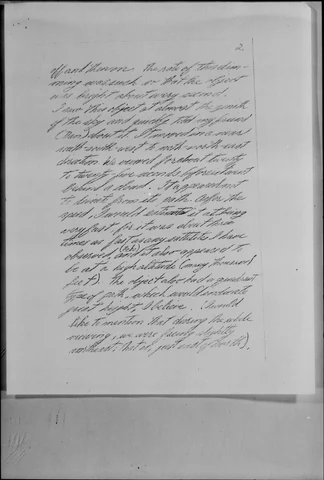 2
off and then on. The rate of this dim-
ming was such so that the object
was bright about every second.
I saw this object at almost the zenith
of the sky and quickly told my friend
about it. It moved in a
south-south-west to north-north-east
direction, & viewed for about twenty
to twenty five seconds before it went
behind a cloud. It
to deviate from its path. As for the
speed, I would estimate it at being
very fast for it was about three
times as fast as any satellites I have
observed, (Echo) and it also appeared to
be at a high altitude (many thousand
feet). The object also had a
type of path, which would indicate
great height, I believe. I would
like to mention that during the while
viewing, we were facing slightly
northeast. (that is, just east of north).